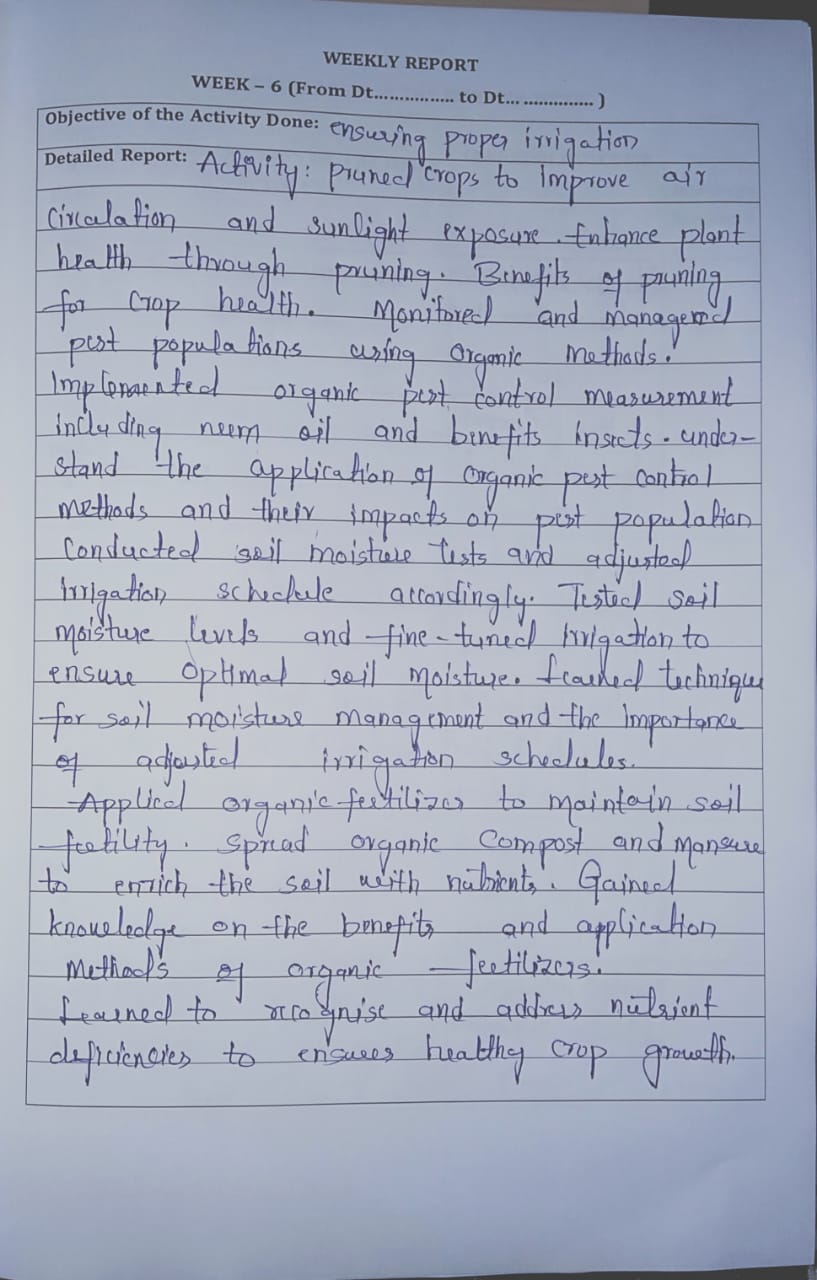 WEEKLY REPORT
WEEK – 6 (From Dt................ to Dt... .............. )
Objective of the Activity Done: ensuring proper irrigation
Detailed Report: Activity: pruned crops to improve air
circulation and sunlight exposure. Enhance plant
health through pruning. Benefits of pruning
for crop health. Monitored and managed
pest populations using organic methods.
Implemented organic pest control measurement
including neem oil and benefits insects. under-
stand the application of organic pest control
methods and their impacts on pest population
Conducted soil moisture tests and adjusted
irrigation schedule accordingly. Tested soil
moisture levels and fine-tuned irrigation to
ensure optimal soil moisture. Learned technique
for soil moisture management and the importance
of adjusted irrigation schedules.
Applied organic fertilizer to maintain soil
fertility. Spread organic compost and manure
to enrich the soil with nutrients. Gained
knowledge on the benefits and application
methods of organic fertilizers.
Learned to recognise and address nutrient
deficiencies to ensures healthy crop growth.